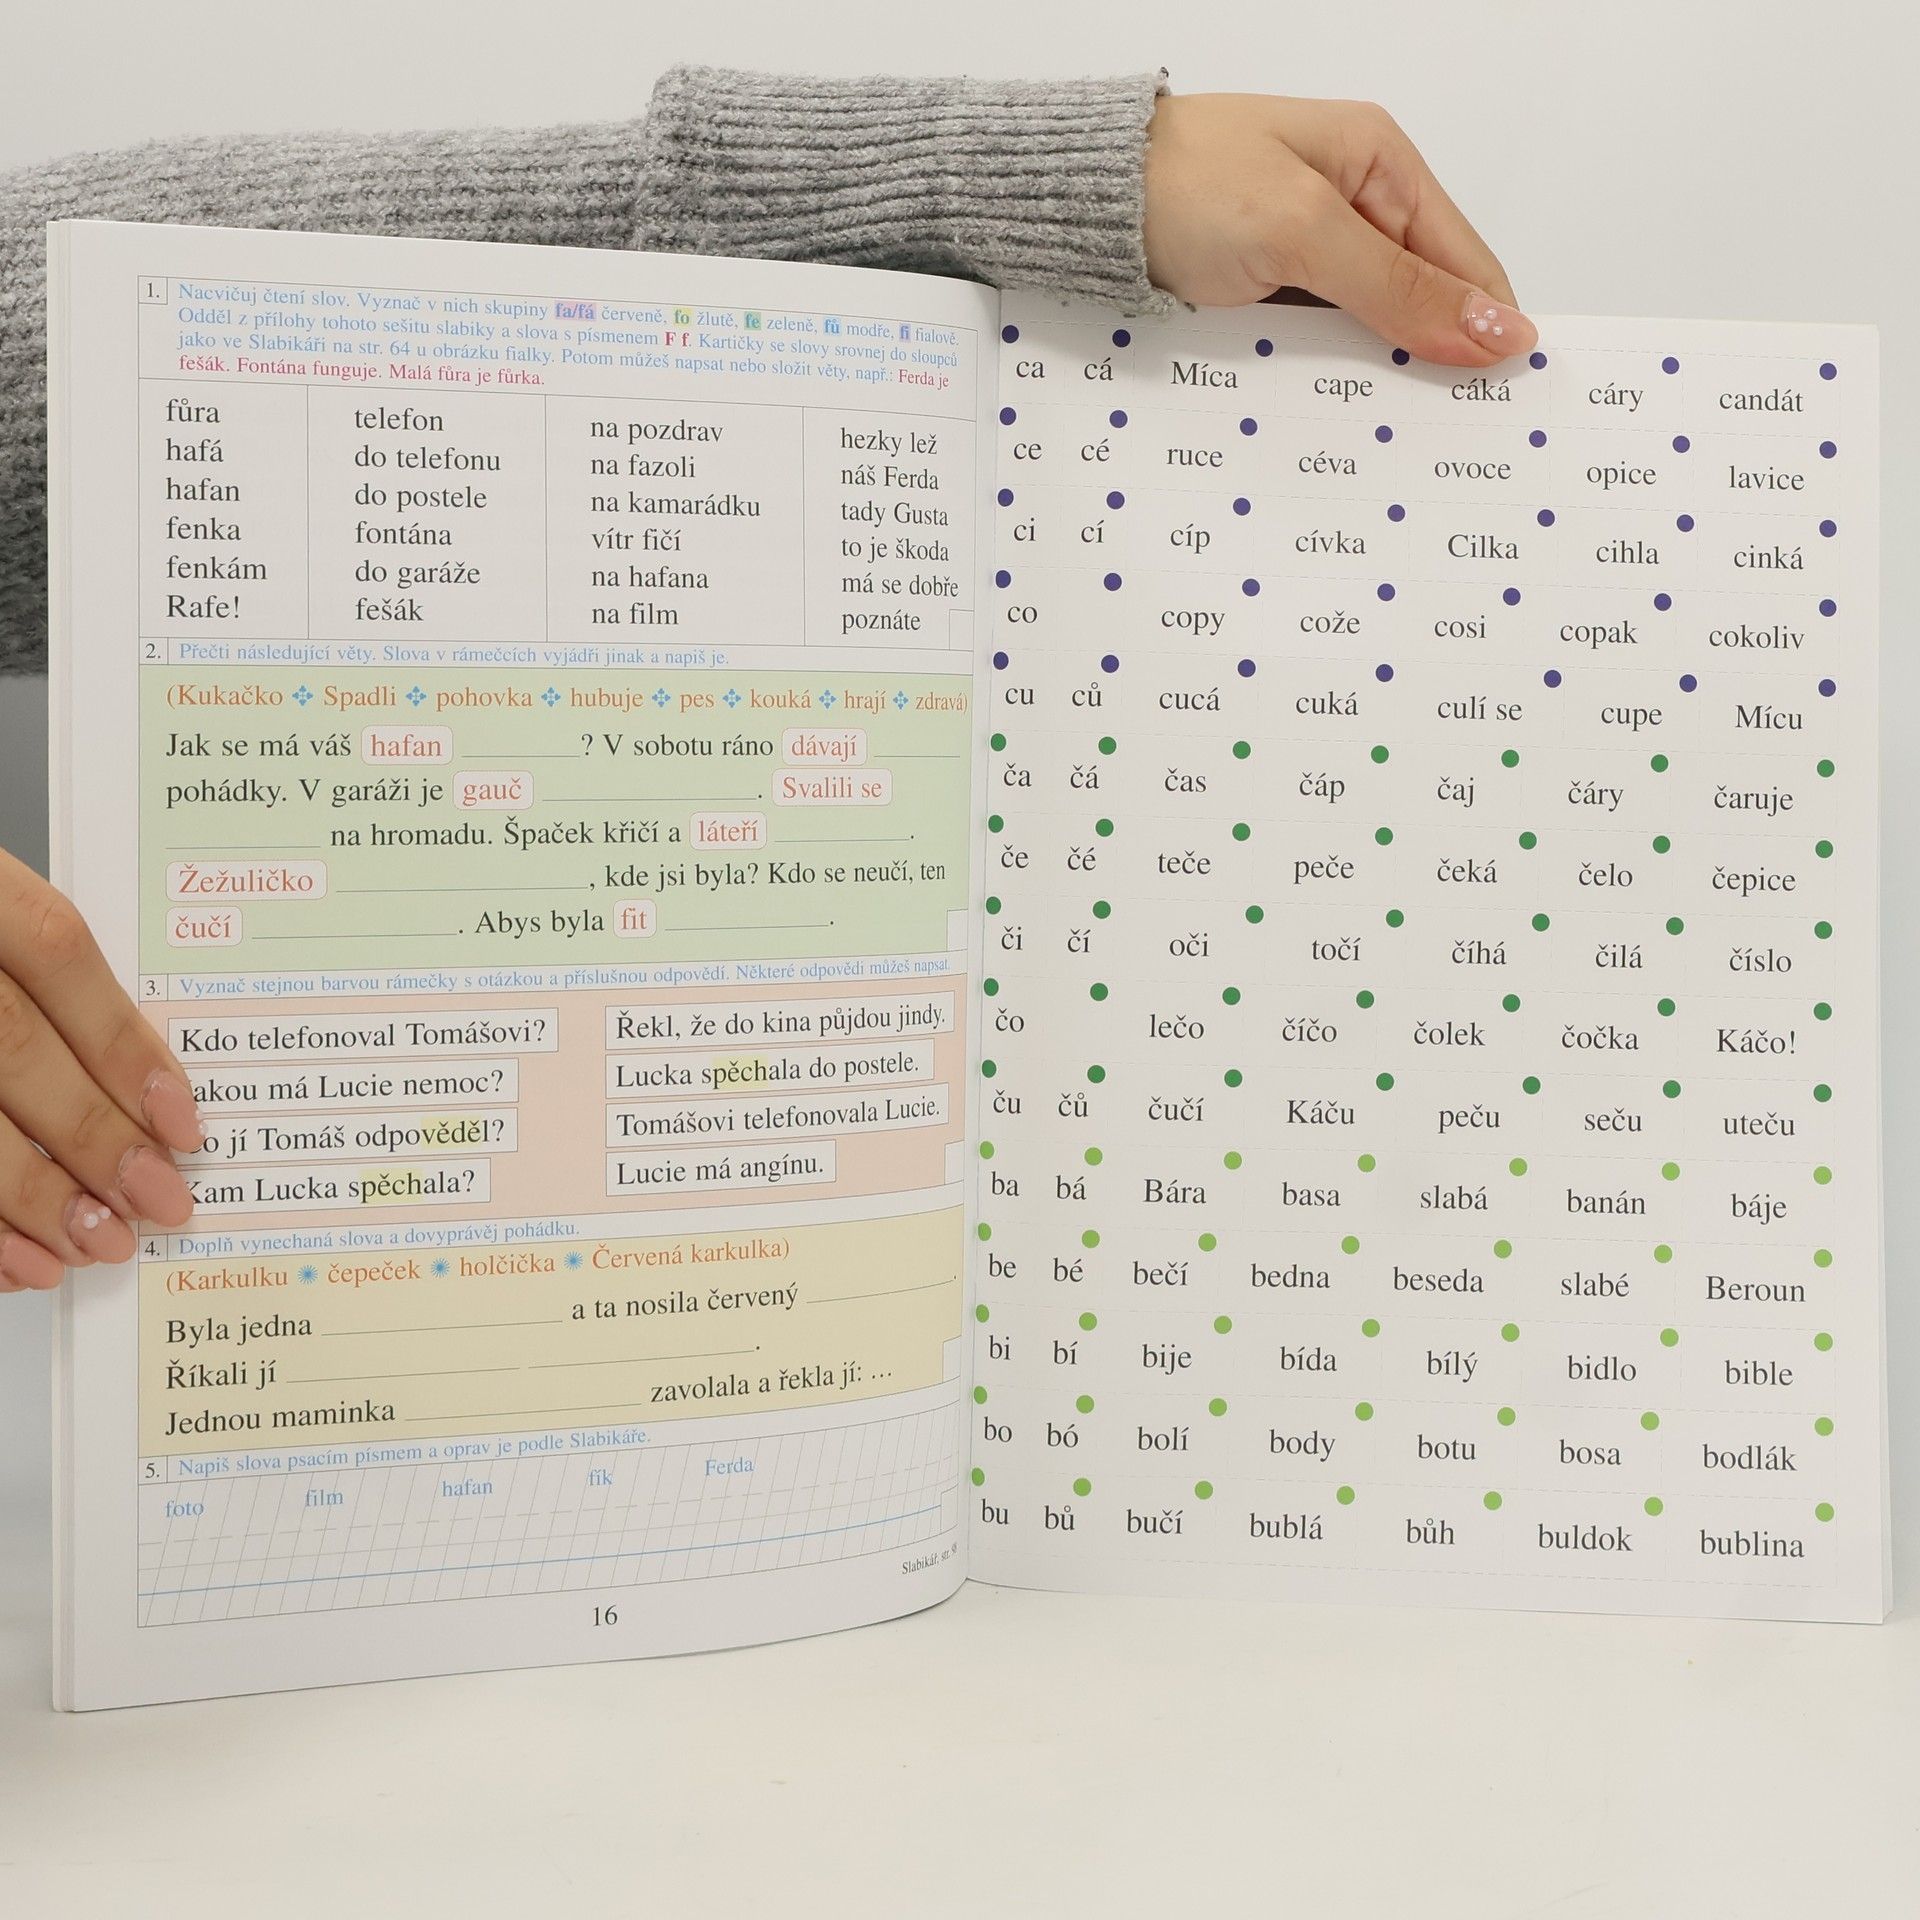 1. Nacvičuj čtení slov. Vyznač v nich skupiny fa/fá červeně, fo žlutě, fe zeleně, fů modře, fi fialově.
Odděl z přílohy tohoto sešitu slabiky a slova s písmenem F f. Kartičky se slovy srovnej do sloupců
jako ve Slabikáři na str. 64 u obrázku fialky. Potom můžeš napsat nebo složit věty, např.: Ferda je
fešák. Fontána funguje. Malá fůra je fůrka.
fůra telefon na pozdrav hezky lež
hafá do telefonu na fazoli náš Ferda
hafan do postele na kamarádku tady Gusta
fenka fontána vítr fičí to je škoda
fenkám do garáže na hafana má se dobře
Rafe! fešák na film poznáte
2. Přečti následující věty. Slova v rámečcích vyjádři jinak a napiš je.
(Kukačko Spadli pohovka hubuje pes kouká hrají zdravá)
Jak se má váš hafan ? V sobotu ráno dávají
pohádky. V garáži je gauč . Svalili se
na hromadu. Špaček křičí a láteří .
Žežuličko , kde jsi byla? Kdo se neučí, ten
čučí . Abys byla fit .
3. Vyznač stejnou barvou rámečky s otázkou a příslušnou odpovědí. Některé odpovědi můžeš napsat.
Kdo telefonoval Tomášovi? Řekl, že do kina půjdou jindy.
akou má Lucie nemoc? Lucka spěchala do postele.
o jí Tomáš odpověděl? Tomášovi telefonovala Lucie.
Kam Lucka spěchala? Lucie má angínu.
4. Doplň vynechaná slova a dovyprávěj pohádku.
(Karkulku čepeček holčička Červená karkulka)
Byla jedna a ta nosila červený .
Říkali jí .
Jednou maminka zavolala a řekla jí: ...
5. Napiš slova psacím písmem a oprav je podle Slabikáře.
foto film hafan fík Ferda
Slabikář, str.
16
ca cá Míca cape cáká cáry candát
ce cé ruce céva ovoce opice lavice
ci cí cíp cívka Cilka cihla cinká
co copy cože cosi copak cokoliv
cu ců cucá cuká culí se cupe Mícu
ča čá čas čáp čaj čáry čaruje
če čé teče peče čeká čelo čepice
či čí oči točí číhá čilá číslo
čo lečo číčo čolek čočka Káčo!
ču čů čučí Káču peču seču uteču
ba bá Bára basa slabá banán báje
be bé bečí bedna beseda slabé Beroun
bi bí bije bída bílý bidlo bible
bo bó bolí body botu bosa bodlák
bu bů bučí bublá bůh buldok bublina